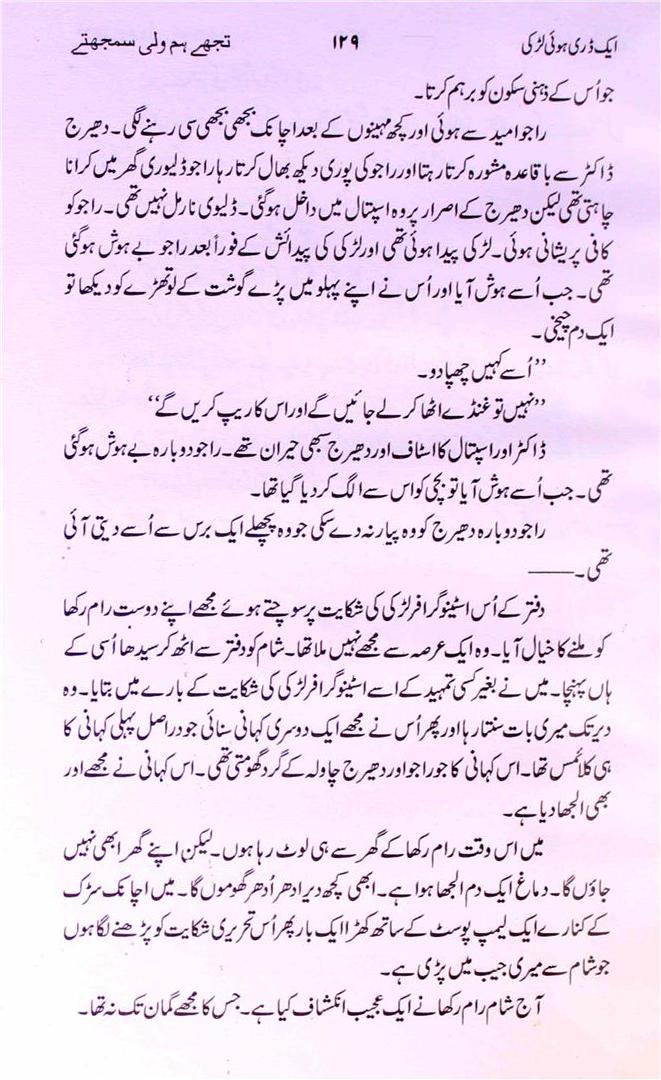 ایک ڈری ہوئی لڑکی ۱۲۹ تجھے ہم ولی سمجھتے
جو اُس کے ذہنی سکون کو برہم کرتا۔
راجو امید سے ہوئی اور کچھ مہینوں کے بعد اچانک بجھی بجھی سی رہنے لگی۔ دھیرج
ڈاکٹر سے باقاعدہ مشورہ کرتا رہتا اور راجو کی پوری دیکھ بھال کرتا رہا راجو ڈلیوری گھر میں کرانا
چاہتی تھی لیکن دھیرج کے اصرار پر وہ اسپتال میں داخل ہوگئی۔ ڈلیوی نارمل نہیں تھی۔ راجو کو
کافی پریشانی ہوئی۔ لڑکی پیدا ہوئی تھی اور لڑکی کی پیدائش کے فوراً بعد راجو بے ہوش ہوگئی
تھی۔ جب اُسے ہوش آیا اور اُس نے اپنے پہلو میں پڑے گوشت کے لوتھڑے کو دیکھا تو
ایک دم چیخی۔
”اُسے کہیں چھپا دو۔
”نہیں تو غنڈے اٹھا کر لے جائیں گے اور اس کا ریپ کریں گے“
ڈاکٹر اور اسپتال کا اسٹاف اور دھیرج سبھی حیران تھے۔ راجو دوبارہ بے ہوش ہوگئی
تھی۔ جب اُسے ہوش آیا تو بچی کو اس سے الگ کر دیا گیا تھا۔
راجو دوبارہ دھیرج کو وہ پیار نہ دے سکی جو وہ پچھلے ایک برس سے اُسے دیتی آئی
تھی۔——
دفتر کے اُس اسٹینوگرافر لڑکی کی شکایت پر سوچتے ہوئے مجھے اپنے دوست رام رکھا
کو ملنے کا خیال آیا۔ وہ ایک عرصہ سے مجھے نہیں ملا تھا۔ شام کو دفتر سے اٹھ کر سیدھا اُسی کے
ہاں پہنچا۔ میں نے بغیر کسی تمہید کے اسے اسٹینوگرافر لڑکی کی شکایت کے بارے میں بتایا۔ وہ
دیر تک میری بات سنتا رہا اور پھر اُس نے مجھے ایک دوسری کہانی سنائی جو دراصل پہلی کہانی کا
ہی کلائمس تھا۔ اس کہانی کا جو راجو اور دھیرج چاولہ کے گرد گھومتی تھی۔ اس کہانی نے مجھے اور
بھی الجھا دیا ہے۔
میں اس وقت رام رکھا کے گھر سے ہی لوٹ رہا ہوں۔ لیکن اپنے گھر ابھی نہیں
جاؤں گا۔ دماغ ایک دم الجھا ہوا ہے۔ ابھی کچھ دیر ادھر اُدھر گھوموں گا۔ میں اچانک سڑک
کے کنارے ایک لیمپ پوسٹ کے ساتھ کھڑا ایک بار پھر اُس تحریری شکایت کو پڑھنے لگا ہوں
جو شام سے میری جیب میں پڑی ہے۔
آج شام رام رکھا نے ایک عجیب انکشاف کیا ہے۔ جس کا مجھے گمان تک نہ تھا۔